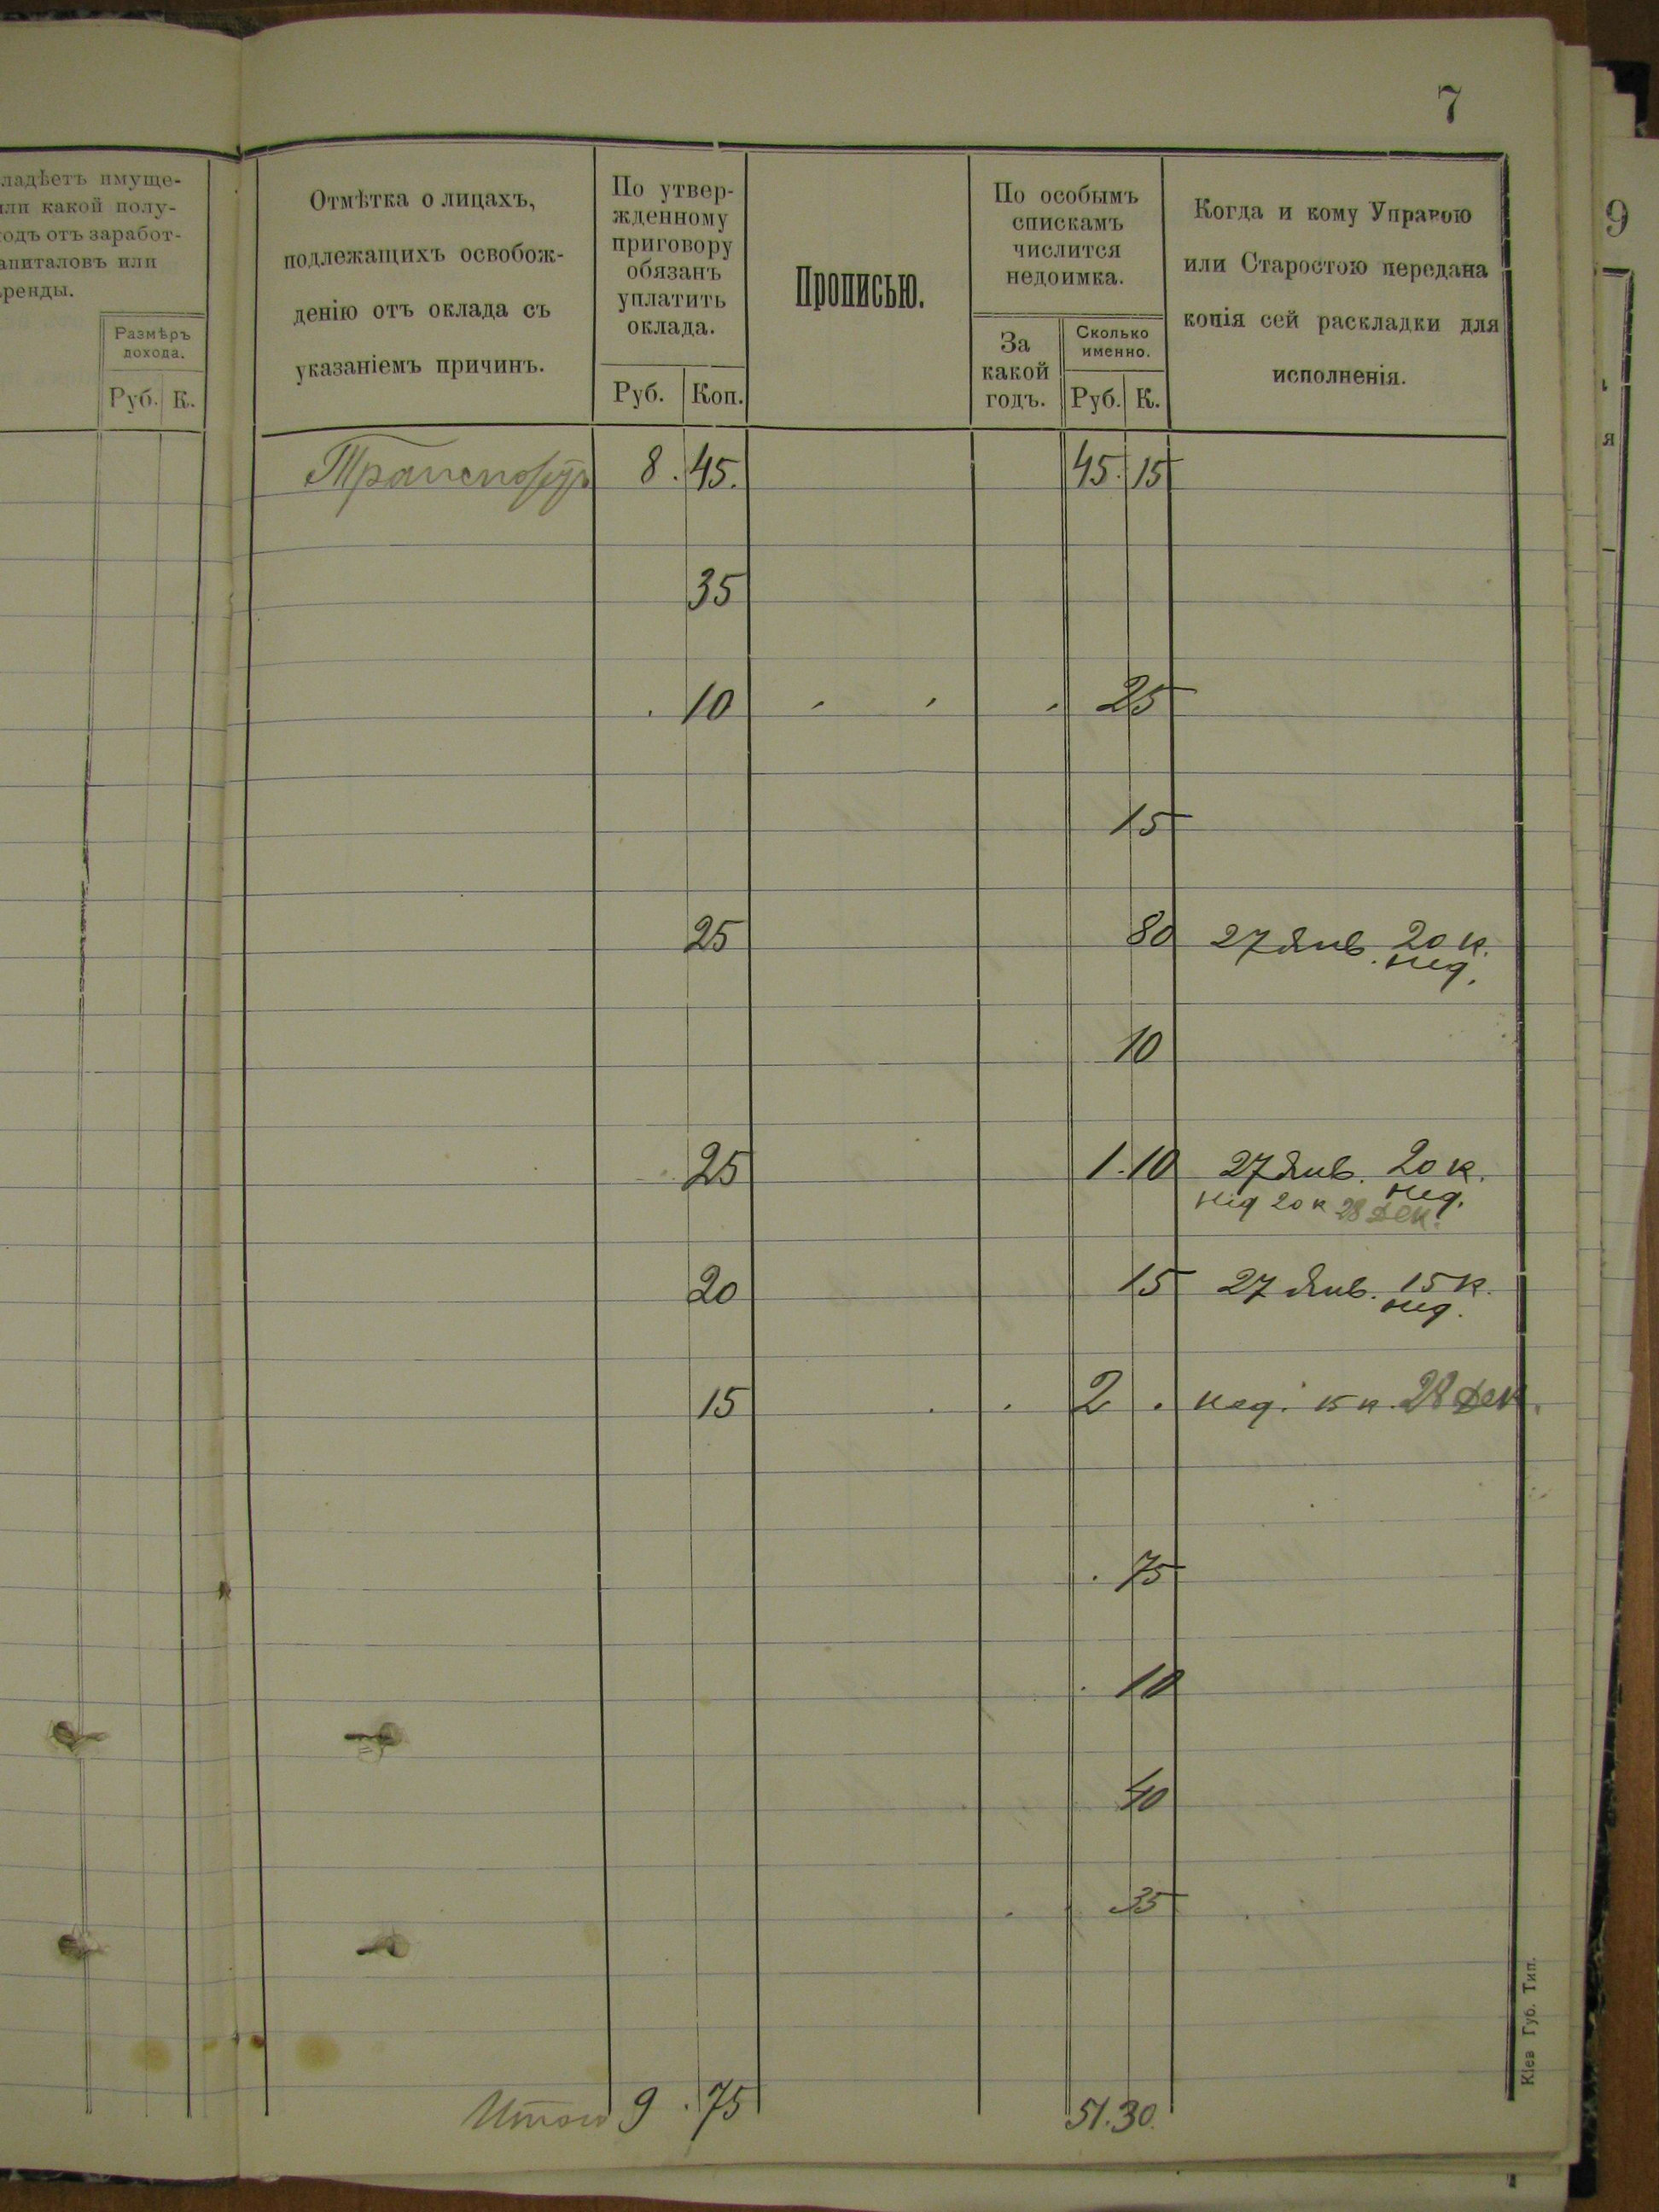 7
ладѣетъ имуще-
или какой полу-
одъ отъ заработ-
апиталовъ или
ренды.
Размѣръ
дохода.
Руб. К.
Отмѣтка о лицахъ,
подлежащихъ освобож-
денію отъ оклада съ
указаніемъ причинъ.
По утвер-
жденному
приговору
обязанъ
уплатить
оклада.
Руб. Коп.
Прописью.
По особымъ
спискамъ
числится
недоимка.
За
какой
годъ.
Сколько
именно.
Руб. К.
Когда и кому Управою
или Старостою передана
копія сей раскладки для
исполненія.
9
я
Транспортъ 8. 45. 45. 15
35
10 25
15
25 80 27 Янв. 20 к.
нед.
10
25 1.10 27 Янв. 20 к.
нед.
нед 20 к 28 Дек.
20 15 27 Янв. 15 к.
нед.
15 2 . нед. 15 к. 28 Дек.
75
10
40
35
Итого 9.75 51.30.
Кіев Губ. Тип.